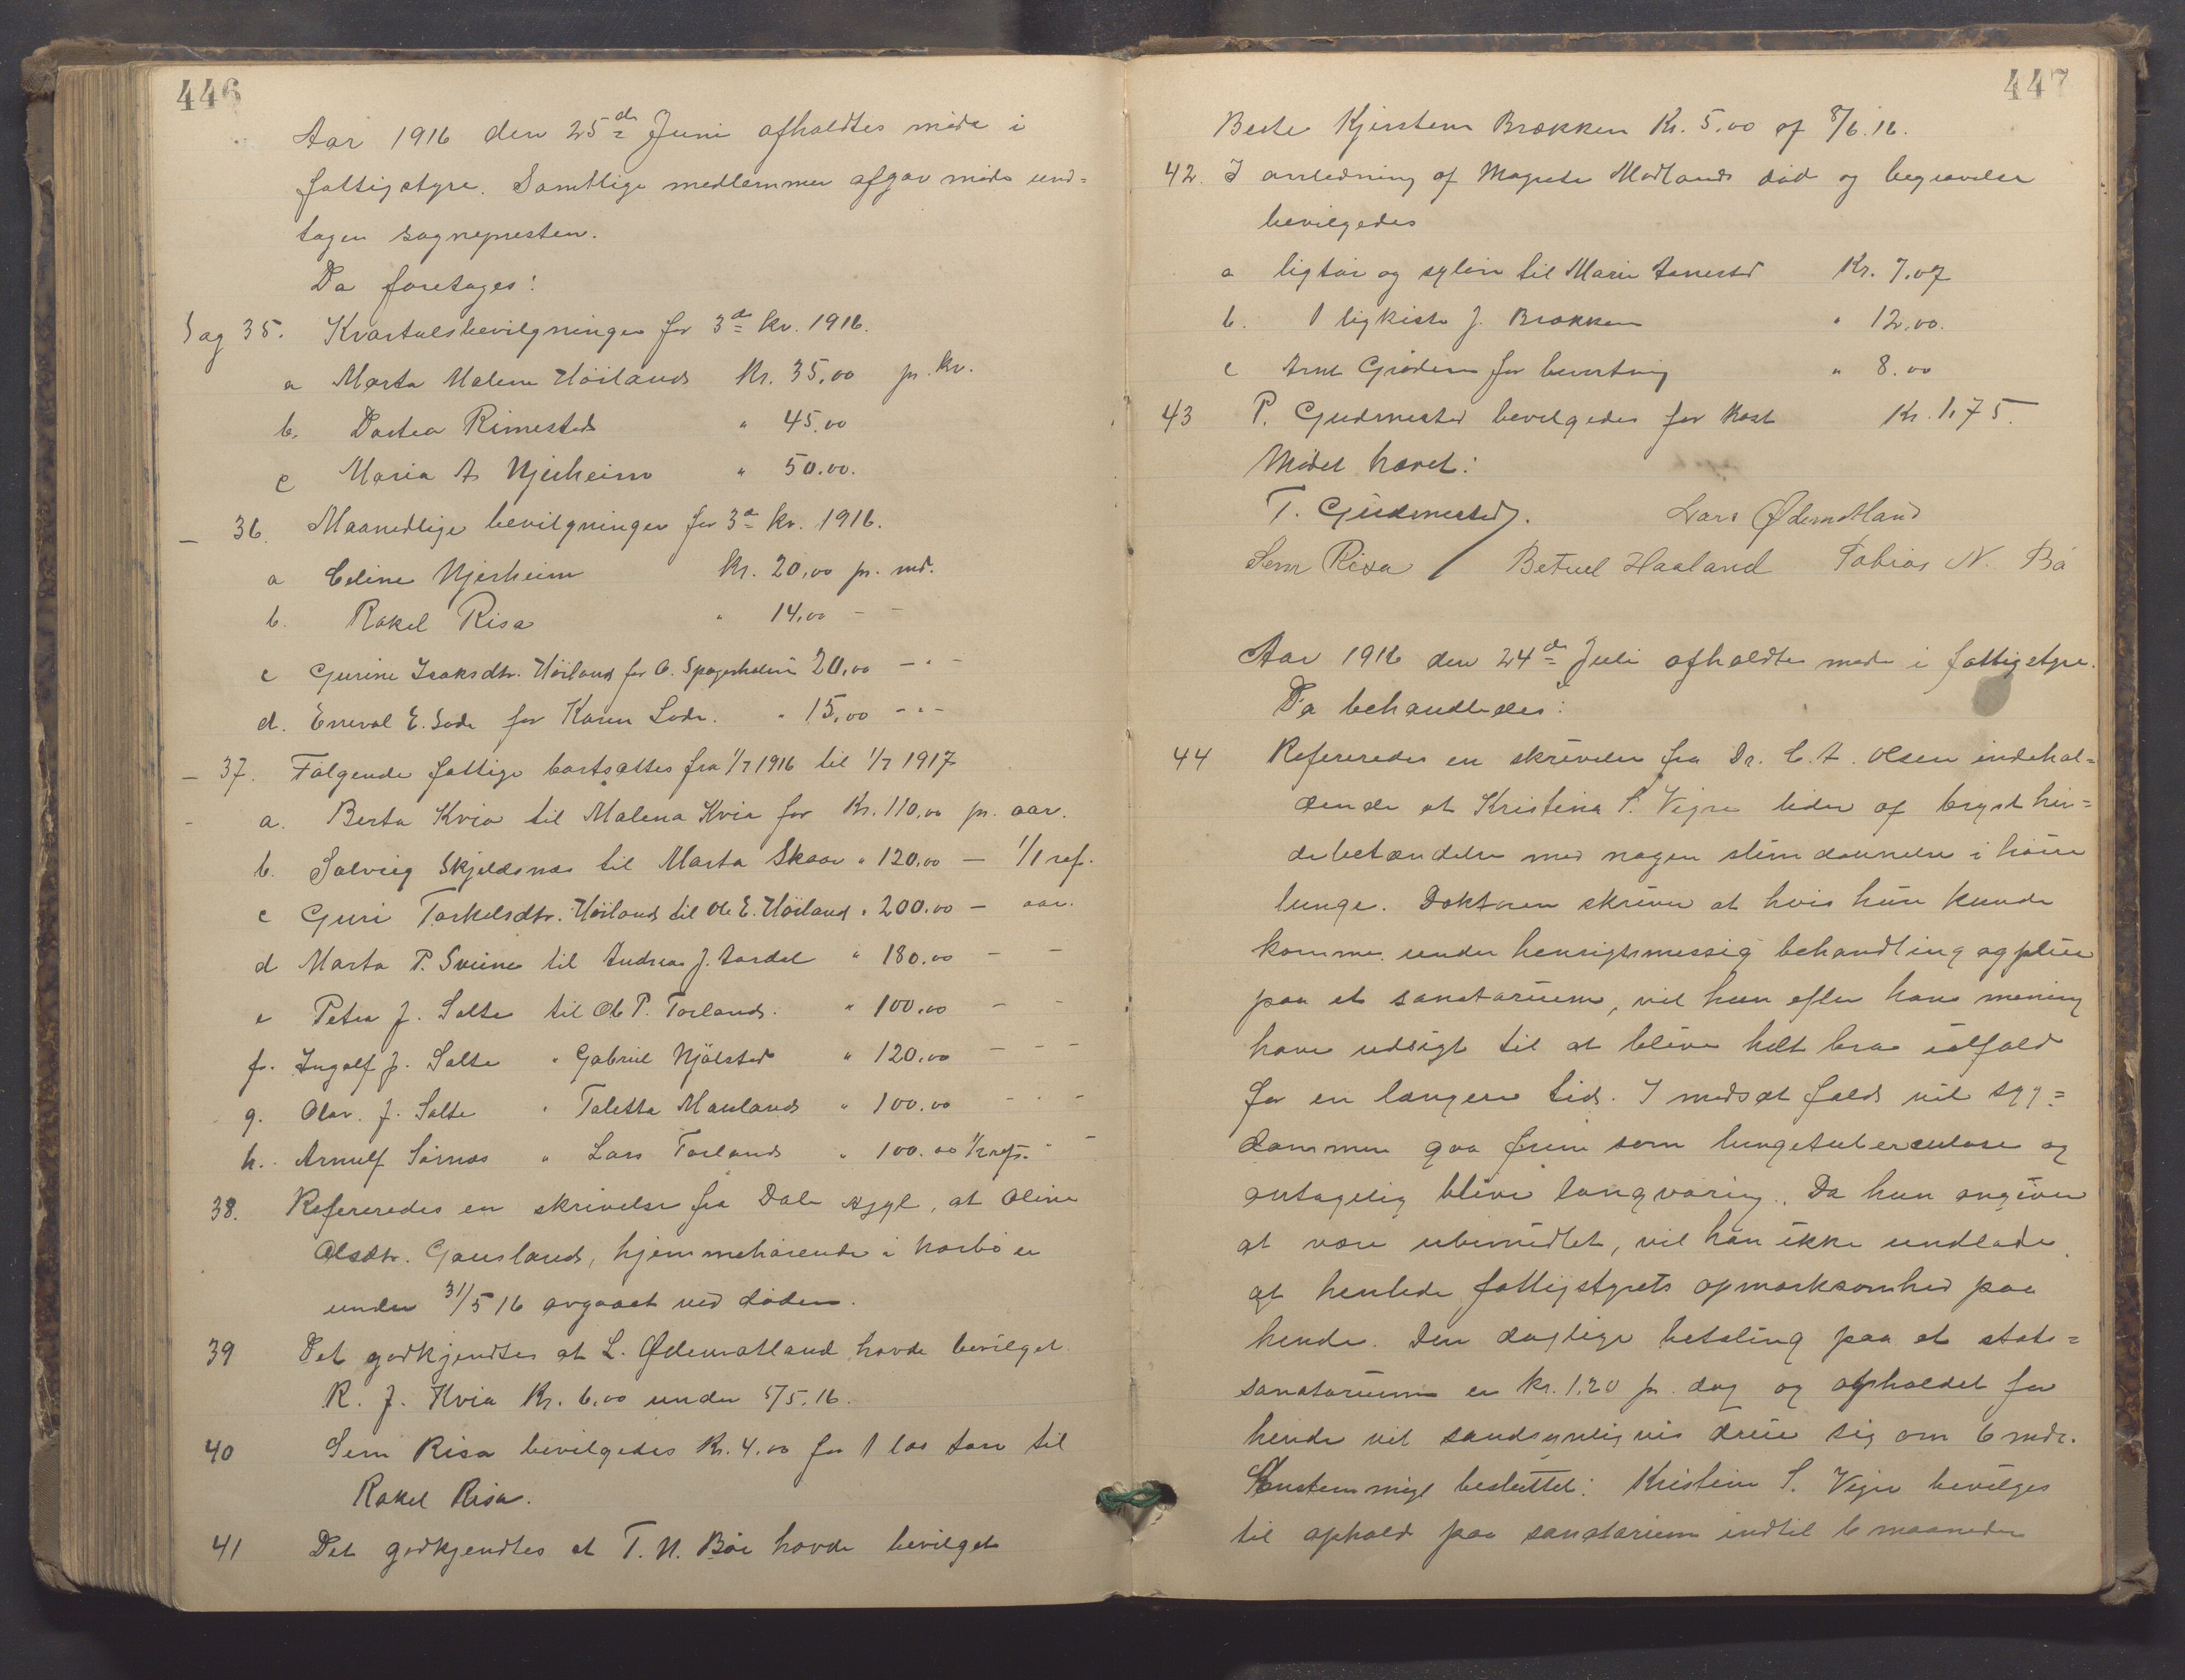 446
Aar 1916 den 25de Juni afholdtes møde i
fattigstyre. Samtlige medlemmer afgav møde und=
tagen sognepresten.
Da foretages:
Sag 35. Kvartalsbevilgninger for 3de kv. 1916.
a Marta Malene Höiland Kr. 35,00 pr. kv.
b. Dortea Rimestad " 45.00
c Maria A Njerheim " 50.00.
— 36. Maanedlige bevilgninger for 3de kv. 1916.
a Celine Njerheim Kr. 20,00 pr. md.
b. Rakel Risa " 14,00 - -
c Gurine Isaksdtr. Höiland for O. Spagerholm 20,00 — " -
d. Enevald E. Lode for Karen Lode. " 15,00 - " -
— 37. Følgende fattige bortsættes fra 1/7 1916 til 1/7 1917
- a. Berta Kvia til Malena Kvia for Kr. 110,00 pr. aar.
b. Solveig Skjeldsnæs til Marta Skaar " 120,00 — 1/1 ref.
c Guri Torkelsdtr. Höiland til Ole E. Höiland " 200.00 — aar.
d Marta P. Sviine til Andreas J. Aardal " 180.00 - -
e Petra J. Salte til Ole P. Torland. " 100,00 - -
f. Ingolf J. Salte " Gabriel Njölstad " 120,00 - - -
g. Olav. J. Salte " Taletta Mauland " 100.00 - " -
h. Arnulf Sörnæs " Lars Torland " 100.00 1/2 ref. " -
38. Refereredes en skrivelse fra Dale sygl, at Oline
Olsdtr. Gausland, hjemmehørende i Nærbø er
under 31/5 16 avgaaet ved døden.
39 Det godkjendtes at L. Ødemotland havde bevilget
R. J. Kvia Kr. 6,00 under 5/5.16.
40 Sem Risa bevilgedes Kr. 4.00 for 1 las torv til
Rakel Risa.
41 Det godkjendtes at T. N. Bøe havde bevilget
447
Berte Kjersten Brækken Kr. 5,00 af 8/6.16.
42. I anledning af Magrete Motlands död og begravelse
bevilgedes
a ligtöi og sylön til Marie Aanestad Kr. 7,07
b. 1 ligkiste J. Brækken " 12,00.
c Arne Grödem for bevertning " 8.00
43 P. Gudmestad bevilgedes for kost Kr. 1,75.
Mödet hævet:
T. Gudmestad. Lars Ødemotland
Sem Risa / Betuel Haaland Tobias N. Bø
Aar 1916 den 24de Juli afholdtes møde i fattigstyre.
Da behandledes:
44 Refereredes en skrivelse fra Dr. C. A. Olsen indehol=
dende at Kristina S. Vigre lider af brysthin=
debetændelse med nogen slimdannelse i høire
lunge. Doktoren skriver at hvis hun kunde
komme under hensigtsmessig behandling og pleie
paa et sanatorium, vil hun efter hans mening
have udsigt til at blive helt bra ialfald
for en længere tid. I modsat fald vil syg=
dommen gaa frem som lungetuberculose og
antagelig blive langvarig. Da hun angiver
at være ubemidlet, vil han ikke undlade
at henlede fattigstyrets opmærksomhed paa
hende. Den daglige betaling paa et stats=
sanatorium er kr. 1,20 pr. dag og opholdet for
hende vil sandsynligvis dreie sig om 6 mdr.
Enstemmigt besluttet: Kristine S. Vigre bevilges
til ophold paa sanatorium indtil 6 maaneder